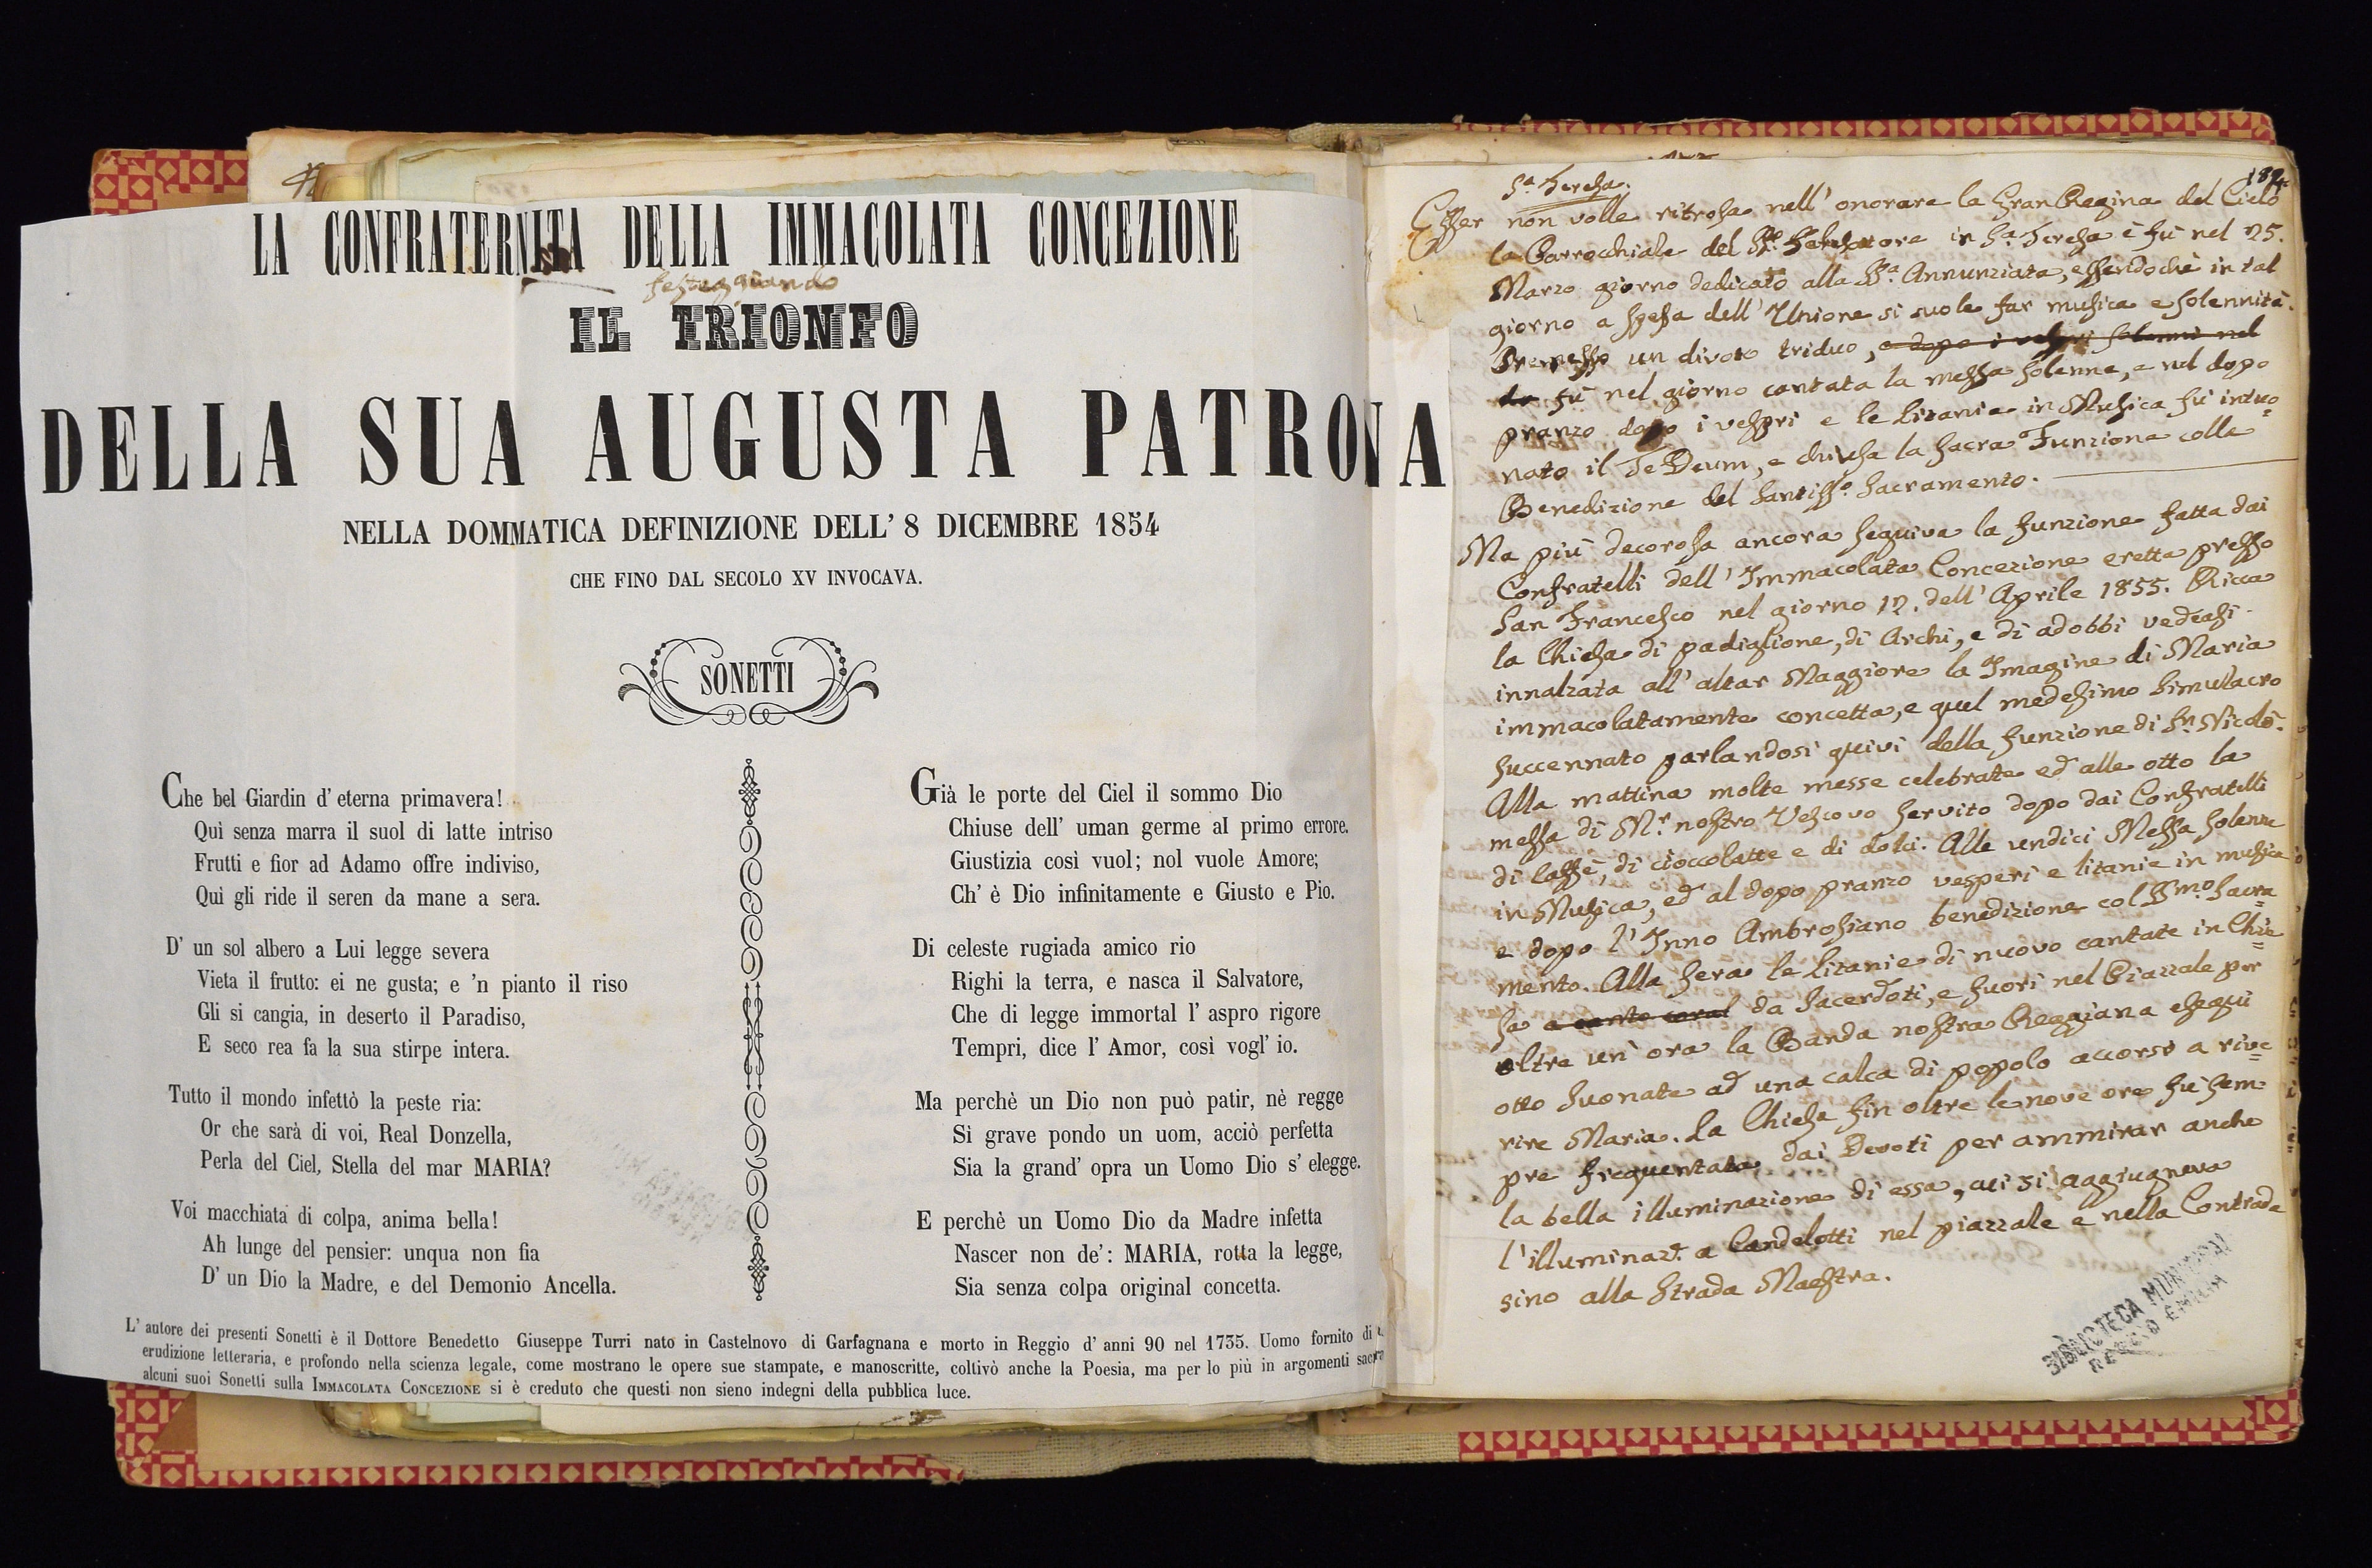 LA CONFRATERNITA DELLA IMMACOLATA CONCEZIONE
festeggiando
IL TRIONFO
DELLA SUA AUGUSTA PATRONA
NELLA DOMMATICA DEFINIZIONE DELL' 8 DICEMBRE 1854
CHE FINO DAL SECOLO XV INVOCAVA.
SONETTI
Che bel Giardin d' eterna primavera!
Quì senza marra il suol di latte intriso
Frutti e fior ad Adamo offre indiviso,
Quì gli ride il seren da mane a sera.
D' un sol albero a Lui legge severa
Vieta il frutto: ei ne gusta; e 'n pianto il riso
Gli si cangia, in deserto il Paradiso,
E seco rea fa la sua stirpe intera.
Tutto il mondo infettò la peste ria:
Or che sarà di voi, Real Donzella,
Perla del Ciel, Stella del mar MARIA?
Voi macchiata di colpa, anima bella!
Ah lunge del pensier: unqua non fia
D' un Dio la Madre, e del Demonio Ancella.
Già le porte del Ciel il sommo Dio
Chiuse dell' uman germe al primo errore.
Giustizia così vuol; nol vuole Amore;
Ch' è Dio infinitamente e Giusto e Pio.
Di celeste rugiada amico rio
Righi la terra, e nasca il Salvatore,
Che di legge immortal l' aspro rigore
Tempri, dice l' Amor, così vogl' io.
Ma perchè un Dio non può patir, nè regge
Sì grave pondo un uom, acciò perfetta
Sia la grand' opra un Uomo Dio s' elegge.
E perchè un Uomo Dio da Madre infetta
Nascer non de': MARIA, rotta la legge,
Sia senza colpa original concetta.
L' autore dei presenti Sonetti è il Dottore Benedetto Giuseppe Turri nato in Castelnovo di Garfagnana e morto in Reggio d' anni 90 nel 1735. Uomo fornito di
erudizione letteraria, e profondo nella scienza legale, come mostrano le opere sue stampate, e manoscritte, coltivò anche la Poesia, ma per lo più in argomenti
alcuni suoi Sonetti sulla IMMACOLATA CONCEZIONE si è creduto che questi non sieno indegni della pubblica luce.
Sa. Teresa.
Esser non volle ritrosa nell' onorare la Gran Regina del Cielo
la Parrocchiale del SSo. Salvatore in Sa. Teresa e fù nel 25.
Marzo giorno dedicato alla SSa. Annunziata, essendochè in tal
giorno a spesa dell' Unione si suole far musica e solennità.
Premesso un divoto triduo, e dopo i vespri solenni nel
do fù nel giorno cantata la messa solenne, e nel dopo
pranzo dopo i vespri e le litanie in Musica fu intuo=
nato il Te Deum, e chiusa la sacra Funzione colla
Benedizione del Santisso. Sacramento.
Ma più decorosa ancora seguiva la funzione fatta dai
Confratelli dell' Immacolata Concezione eretta presso
San Francesco nel giorno 12. dell' Aprile 1855. Ricca
la Chiesa di padiglione, di Archi, e di adobbi vedeasi
innalzata all' altar Maggiore la Imagine di Maria
immacolatamente concetta, e quel medesimo simulacro
succennato parlandosi quivi della funzione di Sn. Nicolò.
Alla mattina molte messe celebrate ed alle otto la
messa di Mr. nostro Vescovo servito dopo dai Confratelli
di Caffè, di cioccolatte e di dolci. Alle undici Messa solenne
in Musica, ed al dopo pranzo vesperi e litanie in musica
e dopo l' Inno Ambrosiano benedizione col SSmo. Sacra=
mento. Alla sera le litanie di nuovo cantate in Chie=
sa a canto coral da Sacerdoti, e fuori nel Piazzale per
oltre un' ora la Banda nostra Reggiana eseguì
otto suonate ad una calca di popolo accorso a rive=
rire Maria. La Chiesa fin oltre le nove ore fù sem-
pre frequentata dai Devoti per ammirar anche
la bella illuminazione di essa, cui si aggiugneva
l'illuminaze. a Candelotti nel piazzale e nella Contrada
sino alla Strada Maestra.
BIBLIOTECA MUNICIPALE
REGGIO EMILIA